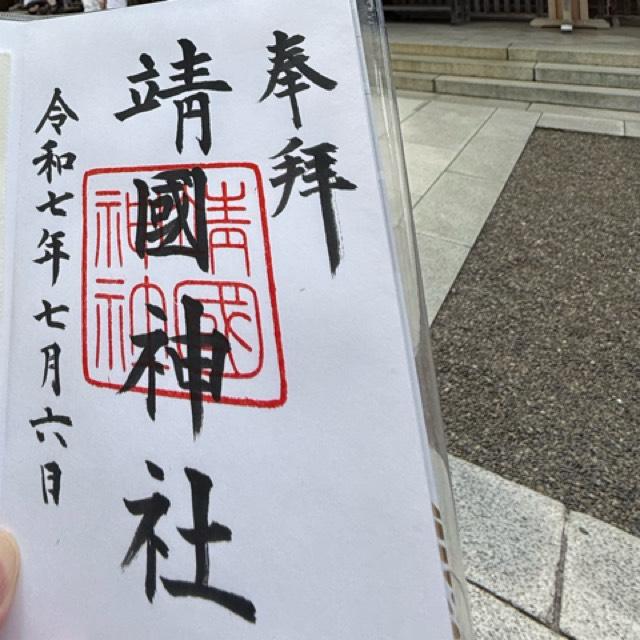 奉拝
靖國神社
靖国
神社
令和七年七月六日